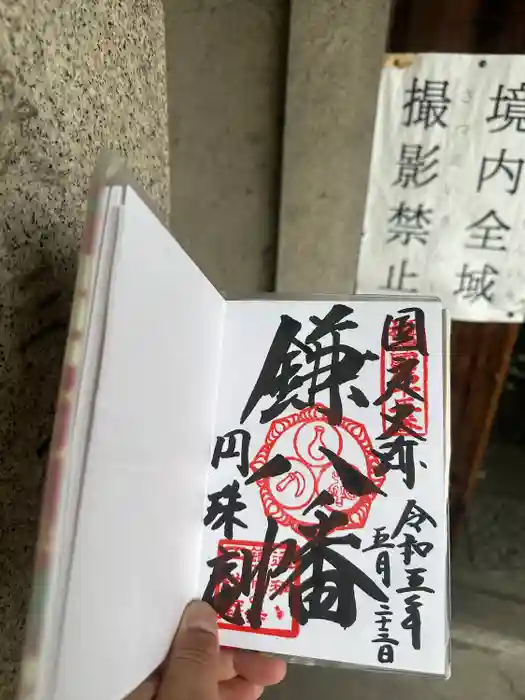 境内全域
撮影禁止
国定史跡
鎌八幡
円珠庵
令和五年
五月二十三日